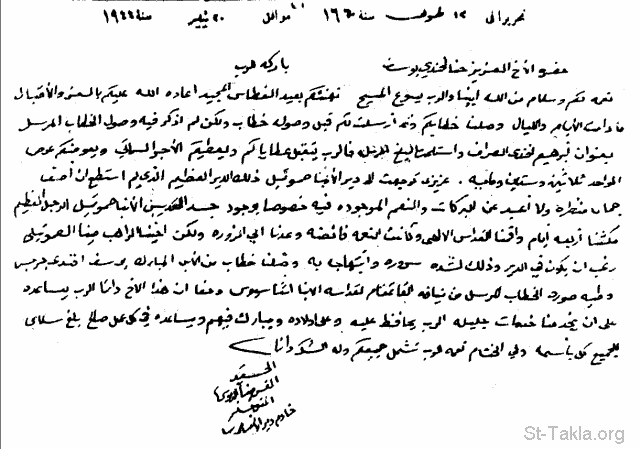 تحريرا في ١٢ طوبى سنة ١٦٦٠ موافق ٢٠ يناير سنة ١٩٤٤
حضرة الأخ العزيز حنا افندي يوسف باركه الرب
نعمة لكم وسلام من الله أبينا والرب يسوع المسيح نهنئكم بعيد الغطاس المجيد اعاده الله عليكم بالسعد والأقبال
ما دامت الأيام والليالي وصلنا خطابكم وقد أرسلت لكم قبل وصوله خطاب ولكن لم اذكر فيه وصول الخطاب المرسل
بعنوان ابرهيم افندي الصراف واستلمنا المبلغ فالرب يتقبل عطاياكم ويعطيكم الأجر السمائي ويعوضكم عوض
الواحد ثلاثين وستين ومايه . عزيزي توجهت لدير الأنبا صموئيل ذلك الدير العظيم الذي لم استطع ان أصف
جمال منظره ولا أعبر عن البركات والنعم الموجوده فيه خصوصا وجود جسد القديس الأنبا صموئيل الرجل العظيم
مكثنا أربعة أيام وأقمنا القداس الالهي وكانت النعمة فائضة وعدنا الى ولكن أخينا الراهب مينا الصموئيلي
رغب ان يكون في الدير وذلك لشدة سروره وابتهاجه به وصلنا خطاب من الأبن المبارك يوسف افندي جرجس
وطيه صورة الخطاب المرسل من نيافة القائمقام لقداسة الأنبا اثناسيوس وحقا ان هذا الأخ دائما الرب يساعده
على ان يخدمنا خدمات جليله الرب يحافظ عليه وعلى اولاده ويبارك فيهم ويساعده في كل عمل صالح بلغ سلامي
للجميع كل بأسمه وفي الختام نعمة الرب تشمل جميعكم وله الشكر دائما
الحقير
القمص مينا
المتوحد
خادم دير
St-Takla.org